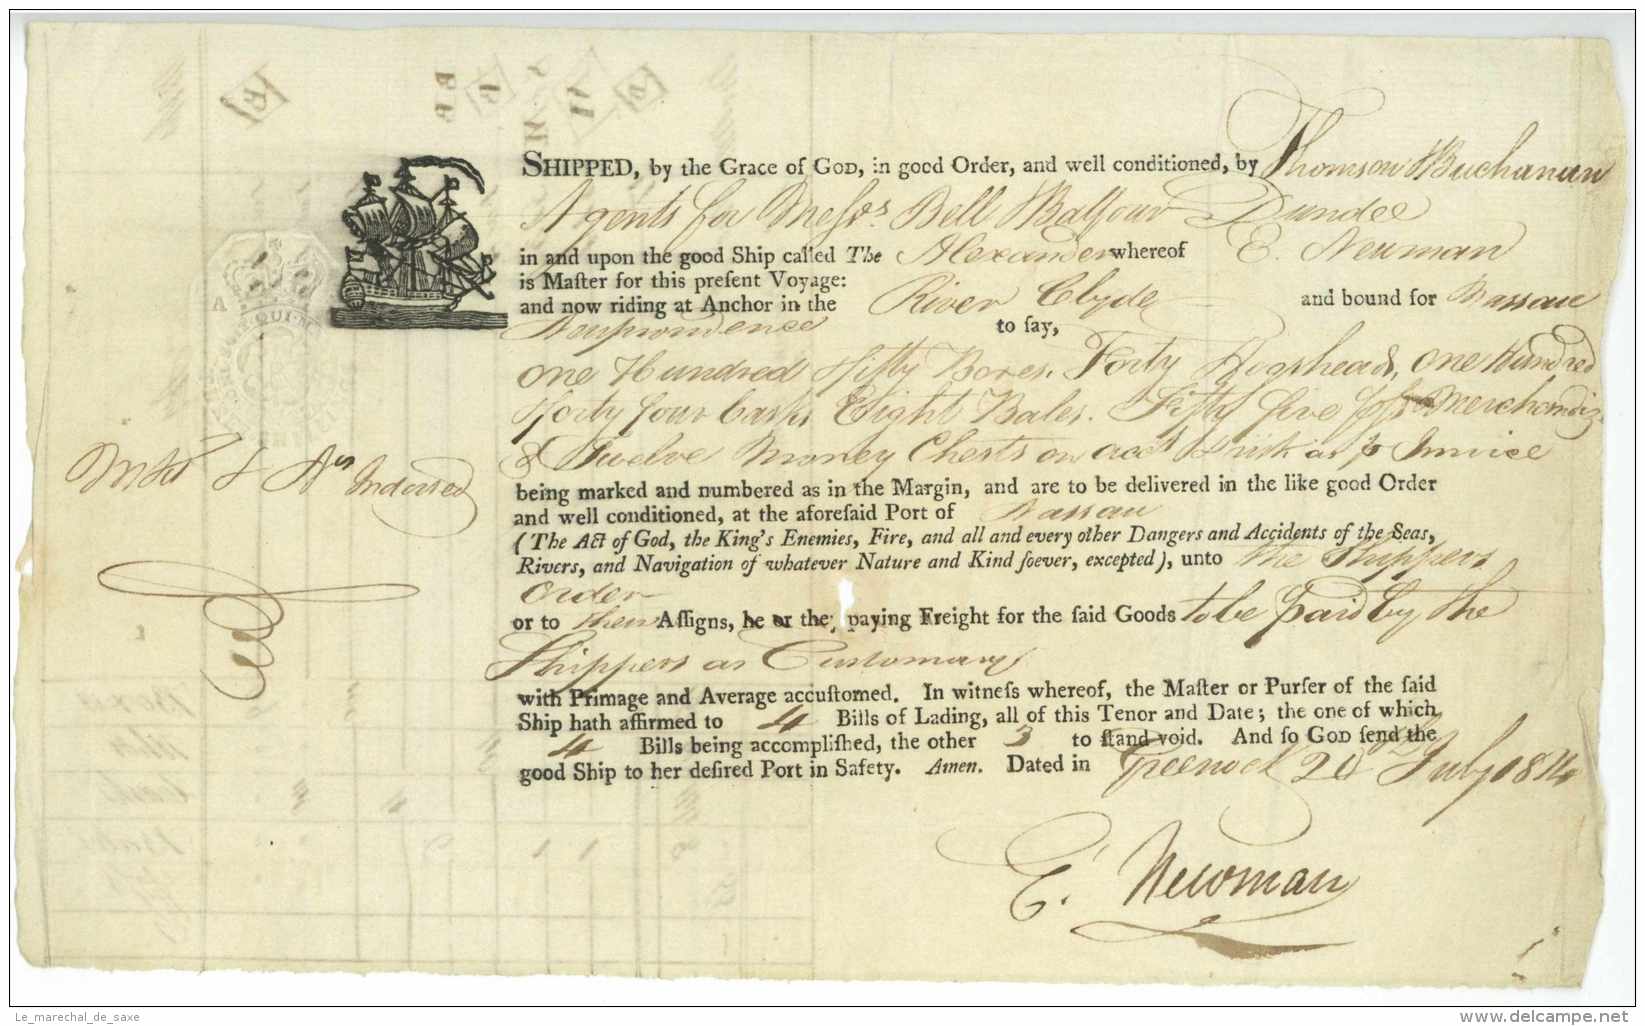 SHIPPED, by the Grace of GOD, in good Order, and well conditioned, by Thomson & Buchanan
Agents for Meſsrs. Bell & Balfour Dundee
in and upon the good Ship called The Alexander whereof E. Newman
is Maſter for this preſent Voyage:
and now riding at Anchor in the River Clyde and bound for Nassau
New Providence to ſay,
One Hundred & fifty Boxes. Forty Hogsheads, One Hundred
& forty four Casks Eight Bales. Fifty five Merchandize
& Twelve Money Chests on acct & risk as p Invoice
being marked and numbered as in the Margin, and are to be delivered in the like good Order
and well conditioned, at the aforeſaid Port of Nassau
(The Act of God, the King's Enemies, Fire, and all and every other Dangers and Accidents of the Seas,
Rivers, and Navigation of whatever Nature and Kind ſoever, excepted), unto the Shippers
Order
or to their Aſſigns, he or they paying Freight for the ſaid Goods to be paid by the
Shippers as Customary
with Primage and Average accuſtomed. In witneſs whereof, the Maſter or Purſer of the ſaid
Ship hath affirmed to 4 Bills of Lading, all of this Tenor and Date; the one of which
4 Bills being accompliſhed, the other 3 to ſtand void. And ſo GOD ſend the
good Ship to her deſired Port in Safety. Amen. Dated in Greenock 20 July 1814
E. Newman
Indorsed
A
Le_marechal_de_saxe
www.delcampe.net